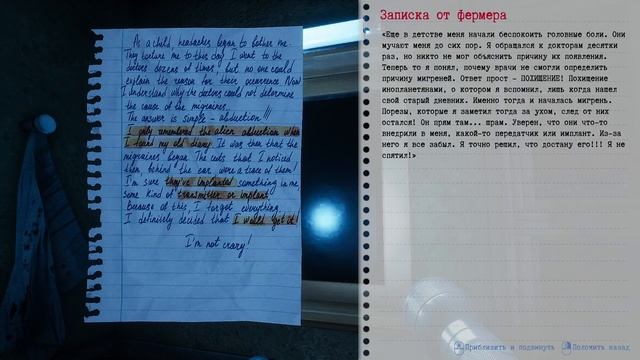 As a child, headaches began to bother me.
They torture me to this day. I went to the
doctors dozens of times, but no one could
explain the reason for their occurrence. Now
I understand why the doctors could not determine
the cause of the migraines.
The answer is simple - abduction!!!
I only remembered the alien abduction when
I found my old diary. It was then that the
migraines began. The cuts that I noticed
then, behind the ear, were a trace of them!
I'm sure they've implanted something in me,
some kind of transmitter or implant.
Because of this, I forgot everything.
I definitely decided that I would get it!
I'm not crazy!
Записка от фермера
«Еще в детстве меня начали беспокоить головные боли. Они
мучают меня до сих пор. Я обращался к докторам десятки
раз, но никто не мог объяснить причину их появления.
Теперь то я понял, почему врачи не смогли определить
причину мигреней. Ответ прост – ПОХИЩЕНИЕ! Похищение
инопланетянами, о котором я вспомнил, лишь когда нашел
свой старый дневник. Именно тогда и началась мигрень.
Порезы, которые я заметил тогда за ухом, след от них
остался! Он прям там... шрам. Уверен, что они что-то
внедрили в меня, какой-то передатчик или имплант. Из-за
него я все забыл. Я точно решил, что достану его!!! Я не
спятил!»
Приблизить и подвинуть Положить назад